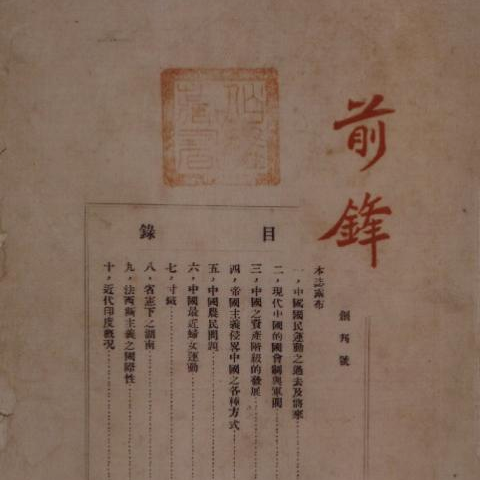 前鋒
創刊號
目錄
本誌露布
一，中國國民運動之過去及將來
二，現代中國的國會制與軍閥
三，中國之資產階級的發展
四，帝國主義侵畧中國之各種方式
五，中國農民問題
六，中國最近婦女運動
七，寸鐵
八，省憲下之湖南
九，法西斯主義之國際性
十，近代印度概況